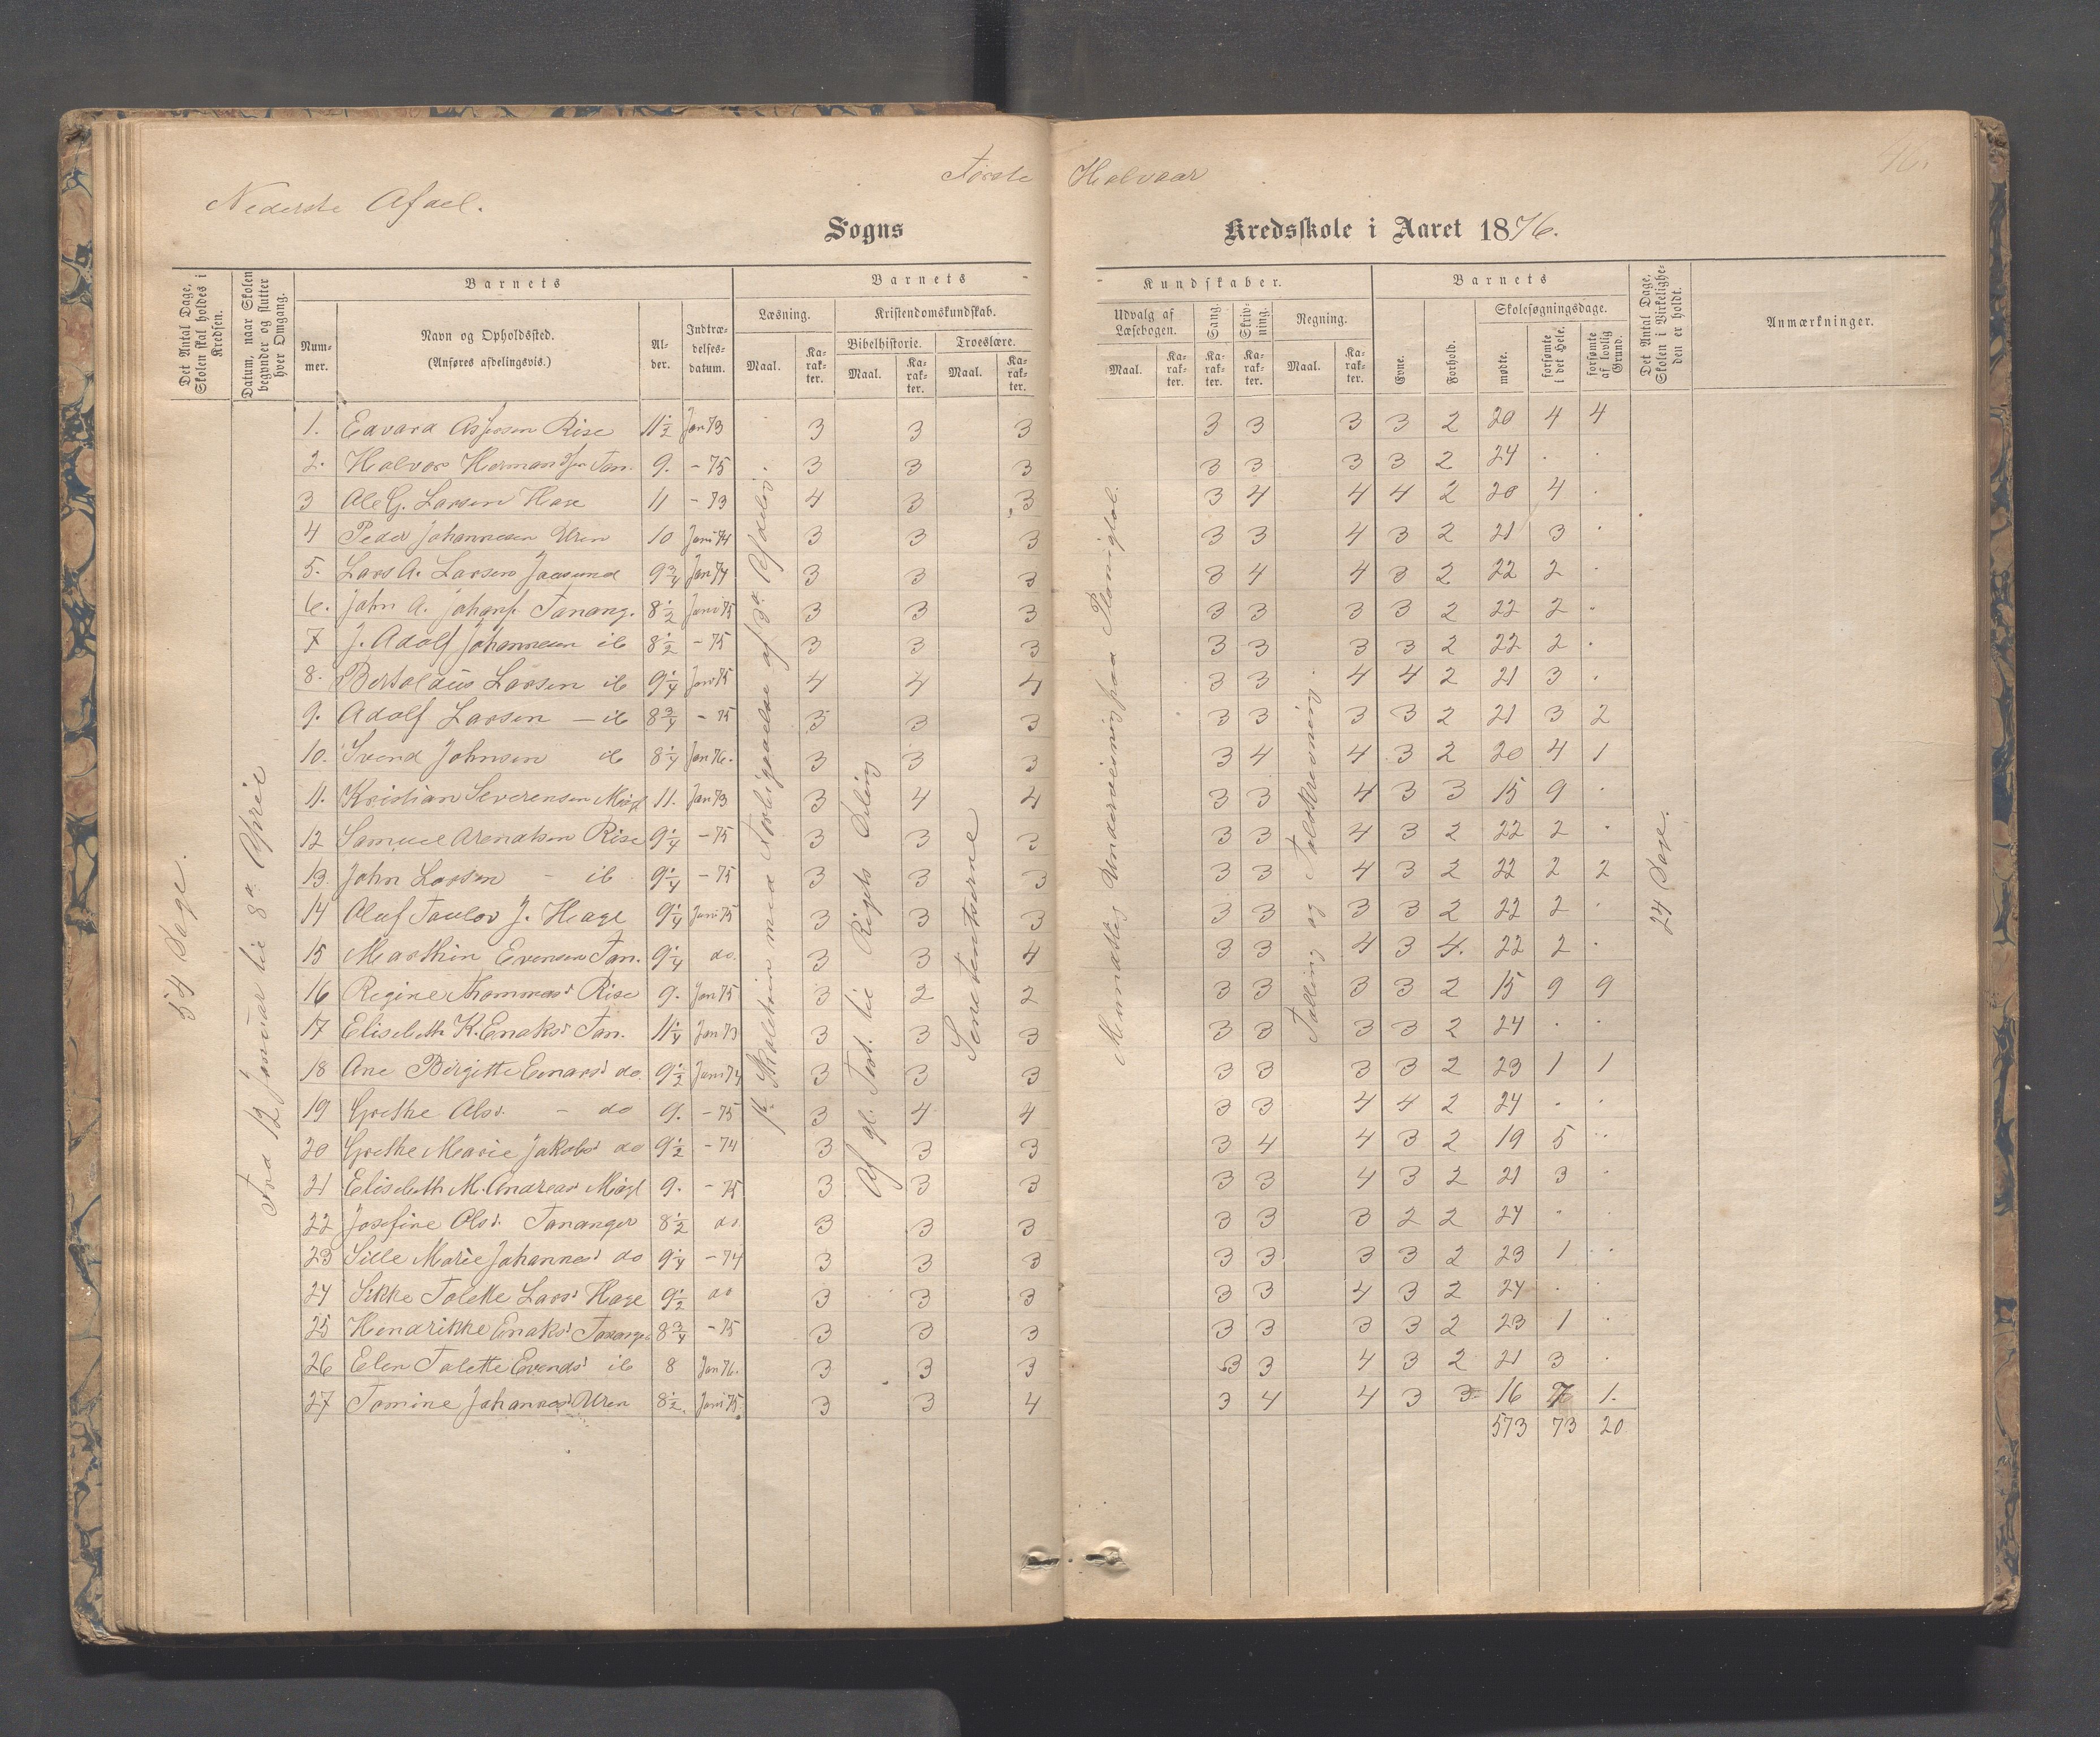 Første Halvaar
Nederste Afdel.
46.
Sogns Kredsskole i Aaret 1876.
Det Antal Dage, Skolen skal holdes i Kredsen.
Datum, naar Skolen begynder og slutter hver Omgang.
Barnets
Nummer.
Navn og Opholdssted. (Anføres afdelingsvis.)
Alder.
Indtrædelsesdatum.
Barnets Kundskaber.
Læsning.
Kristendomskundskab.
Bibelhistorie.
Troeslære.
Udvalg af Læsebogen.
Sang.
Skrivning.
Regning.
Maal. Karakter. Maal. Karakter. Maal. Karakter. Maal. Karakter. Karakter. Karakter. Maal. Karakter.
Barnets
Evne.
Forhold.
Skolesøgningsdage.
mødte.
forsømte i det Hele.
forsømte af lovlig Grund.
Det Antal Dage, Skolen i Virkeligheden er holdt.
Anmærkninger.
54 Dage.
Fra 12 Januar til 8de April
Af gl. Test. til Rigets Deling
Sententserne
Tælling og Talskrivning.
24 Dage.
1. Edvard Aspersen Rise 11½ Jan 73 3 3 3 3 3 3 3 2 20 4 4
2. Halvor Hermandsen Tan. 9. - 75 3 3 3 3 3 3 3 2 24 . .
3 Ole G. Larsen Hage 11 - 73 4 3 3 3 4 4 4 2 20 4 .
4 Peder Johannesen Uren 10 Juni 74 3 3 3 3 3 4 3 2 21 3 .
5. Lars A. Larsen Jaasund 9¾ Jan 74 3 3 3 3 4 4 3 2 22 2 .
6. John A. Johans. Tanang. 8½ Juni 75 3 3 3 3 3 3 3 2 22 2 .
7 J. Adolf Johannesen ib 8½ - 75 3 3 3 3 3 3 3 2 22 2 .
8. Bertolaus Larsen ib 9¼ Jan 75 4 4 4 3 3 4 4 2 21 3 .
9. Adolf Larsen - ib 8¾ - 75 3 3 3 3 3 3 3 2 21 3 2
10. Svend Johnsen ib 8¼ Jan 76. 3 3 3 3 4 4 3 2 20 4 1
11. Kristian Severensen Migl 11. Jan 73 3 4 4 3 3 4 3 3 15 9 .
12 Samuel Arendtsen Rise 9¼ - 75 3 3 3 3 3 4 3 2 22 2 .
13. John Larsen - ib 9¼ - 75 3 3 3 3 3 4 3 2 22 2 2
14 Oluf Taulov J. Hage 9¼ Juni 75 3 3 3 3 3 3 3 2 22 2 .
15 Marthin Evensen Tan. 9¼ do. 3 3 4 3 3 4 3 4. 22 2 .
16 Regine Thommasd Rise 9. Jan 75 3 2 2 3 3 3 3 2 15 9 9
17 Elisebeth K. Enoksd Tan. 11¼ Jan 73 3 3 3 3 3 3 3 2 24 . .
18 Ane Birgitte Einarsd do. 9½ Juni 74 3 3 3 3 3 3 3 2 23 1 1
19 Grethe Olsd. - do 9. - 75 3 4 4 3 3 4 4 2 24 . .
20 Grethe Marie Jakobsd do 9½ - 74 3 3 3 3 4 4 3 2 19 5 .
21 Elisebeth M. Andreasd Migl 9. - 75 3 3 3 3 3 4 3 2 21 3 .
22 Josefine Olsd. Tananger 8½ do. 3 3 3 3 3 3 2 2 24 . .
23 Sille Marie Johannesd do 9¼ - 74 3 3 3 3 3 3 3 2 23 1 .
24 Sikke Tolette Larsd Hage 9½ do 3 3 3 3 3 4 3 2 24 . .
25 Hendrikke Enoksd Tananger 8¾ - 75 3 3 3 3 3 3 3 2 23 1 .
26 Elen Tolette Evendsd ib 8 Jan 76. 3 3 3 3 3 4 3 2 21 3 .
27 Tomine Johannesd Uren 8½. Juni 75. 3 3 4 3 4 4 3 3 16 7 1.
573 73 20